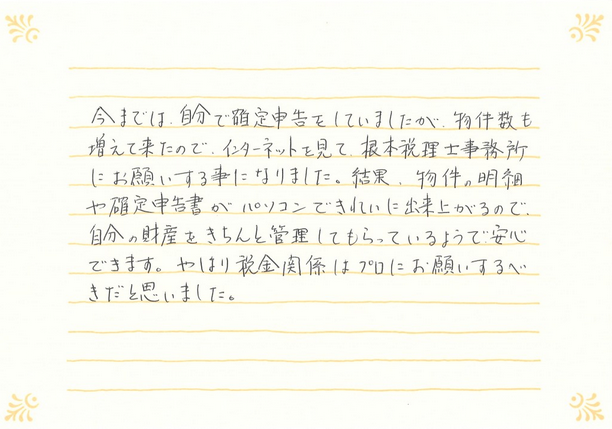 今までは、自分で確定申告をしていましたが、物件数も
増えて来たので、インターネットを見て、根本税理士事務所
にお願いする事になりました。結果、物件の明細
や確定申告書がパソコンできれいに出来上がるので、
自分の財産をきちんと管理してもらっているようで安心
できます。やはり税金関係はプロにお願いするべ
きだと思いました。